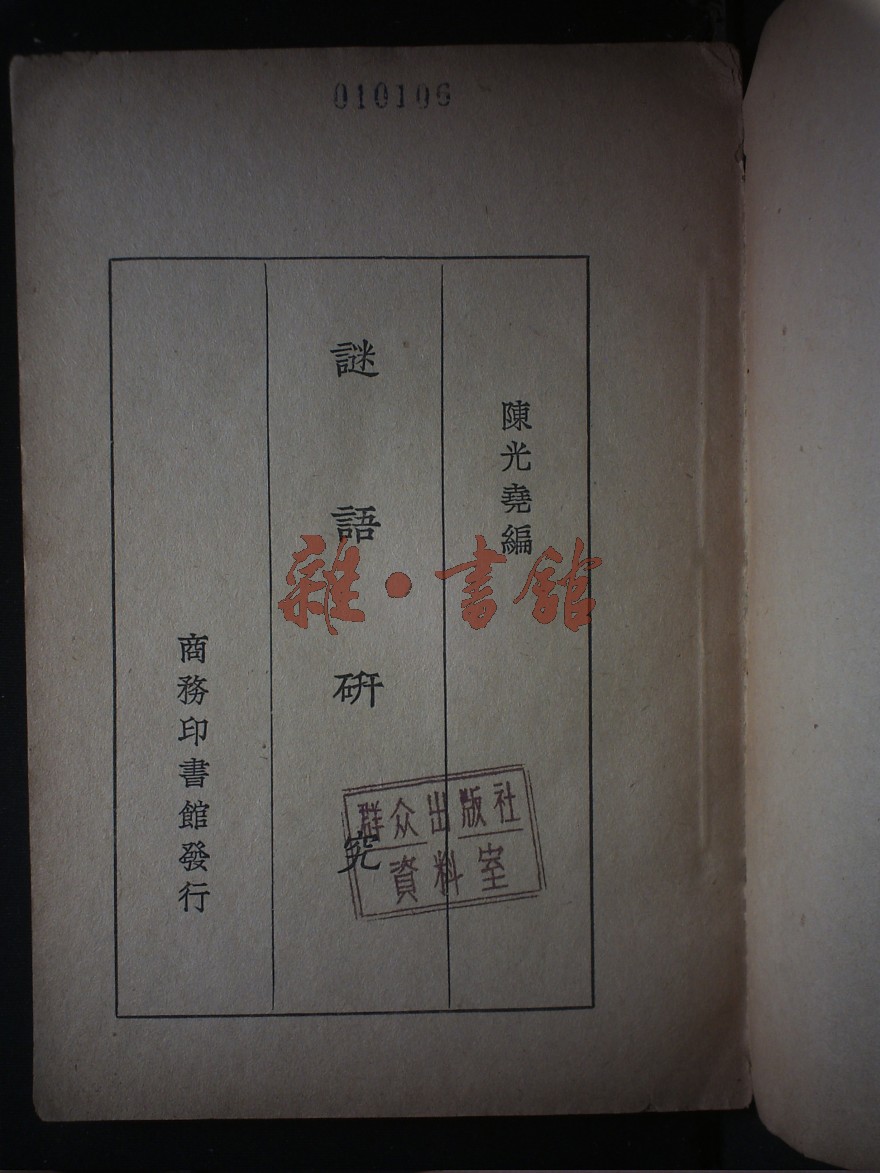 010106
陳光堯編
謎語研究
商務印書館發行
群众出版社
資料室
雜·書館